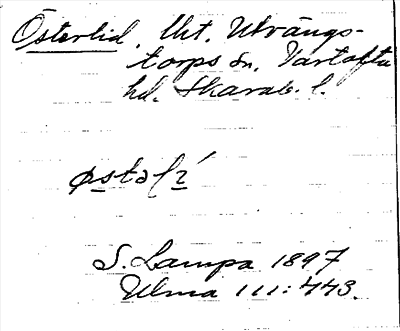 Österlid, Uht. Utvängs-
torps sn, Vartofta
hd. Skarab. l.
S. Lampa 1897
Ulma 111:443.